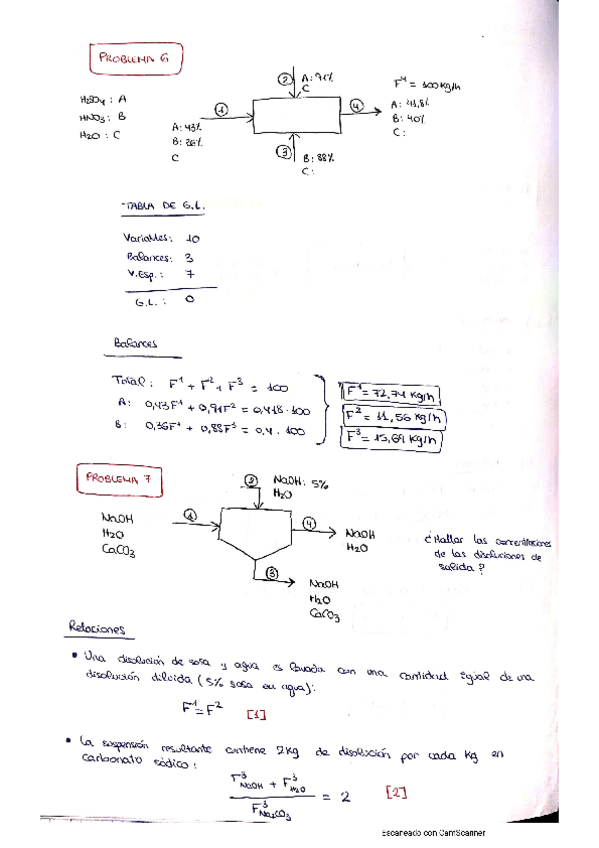 PROBLEMA 6
② A: 91%
C
F⁴ = 100 kg/h
H₂SO₄ : A
HNO₃ : B
H₂O : C
①
④
A: 43%
B: 36%
C
A: 41,8%
B: 40%
C:
③ B: 88%
C:
TABLA DE G.L.
Variables: 10
Balances: 3
V.Esp.: 7
G.L.: 0
Balances
Total: F¹ + F² + F³ = 100
A: 0,43F¹ + 0,91F² = 0,418·100
B: 0,36F¹ + 0,88F³ = 0,4·100
F¹ = 72,74 kg/h
F² = 11,56 kg/h
F³ = 15,69 kg/h
PROBLEMA 7
② NaOH: 5%
H₂O
NaOH
H₂O
CaCO₃
①
④
NaOH
H₂O
¿Hallar las concentraciones
de las disoluciones de
salida?
③
NaOH
H₂O
CaCO₃
Relaciones
• Una disolución de sosa y agua es lavada con una cantidad igual de una
disolución diluida (5% sosa en agua):
F¹ = F² [1]
• La suspensión resultante contiene 2kg de disolución por cada kg en
carbonato sódico:
F³NaOH + F³H₂O
= 2 [2]
F³Na₂CO₃
Escaneado con CamScanner